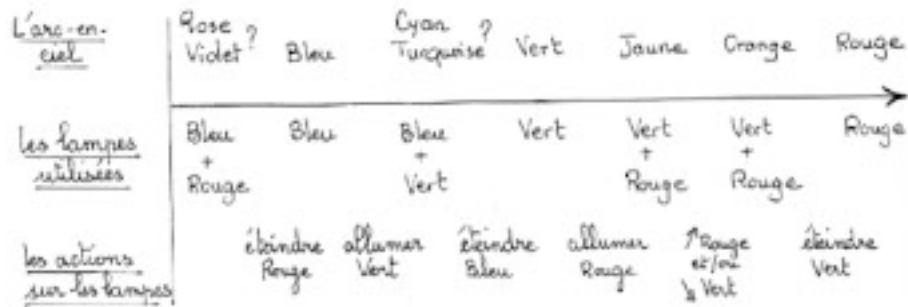 L'arc-en-
ciel
Rose
Violet ?
Bleu
Cyan
Turquoise ?
Vert
Jaune
Orange
Rouge
Les lampes
utilisées
Bleu
+
Rouge
Bleu
Bleu
+
Vert
Vert
Vert
+
Rouge
Vert
+
Rouge
Rouge
les actions
sur les lampes
éteindre
Rouge
allumer
Vert
éteindre
Bleu
allumer
Rouge
↑ Rouge
et/ou
↘ Vert
éteindre
Vert